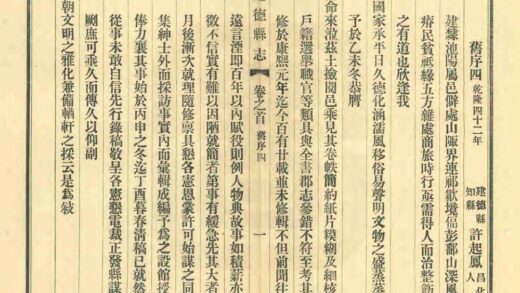 舊序四 乾隆四十二年
建德縣知縣 許起鳳 昌化人
建隸池陽屬邑僻處山陬界連祁歙境 彭鄱山深風
瘠民貧祇緣五方雜處商旅時行亟需得人而治整飭
之有道也欣逢我
國家承平日久德化涵濡風移俗易聲明文物之盛蒸蒸
予於乙未冬恭膺
命來蒞茲土撿閱邑乘見其卷軼簡約紙片糢糊及細核
戶籍選舉職官等類具與全書郡志參錯不符至考其
修於康熙元年迄今百有廿載並未修輯不但前聞往
德縣志 卷之首 舊序四 一
遠言湮即百年以內賦役則例人物典故事如積薪亦
徵不信實有難以因陋就簡者第事有緩急先其大者
月後漸次就理隨修禀具懇各憲恩彙許可始謀之同
集紳士外而採訪事實內而彙輯成編予為之設館授
俸力襄其事始於丙申之冬迄丁酉暮春清稿已就然
從事未敢自信先行錄稿敬呈各憲懇電裁正發縣謀
劂庶可乘久而傳久以仰副
朝文明之雅化兼備輶軒之採云是為敘